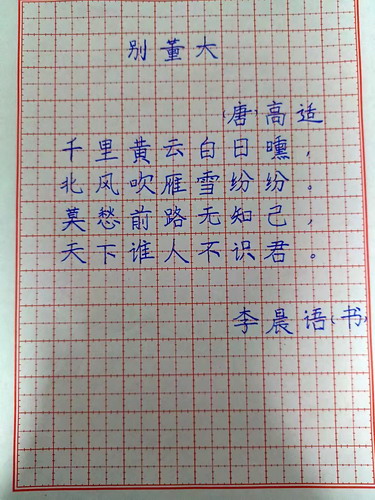 别董大
(唐)高适
千里黄云白日曛，
北风吹雁雪纷纷。
莫愁前路无知己，
天下谁人不识君。
李晨语(书)